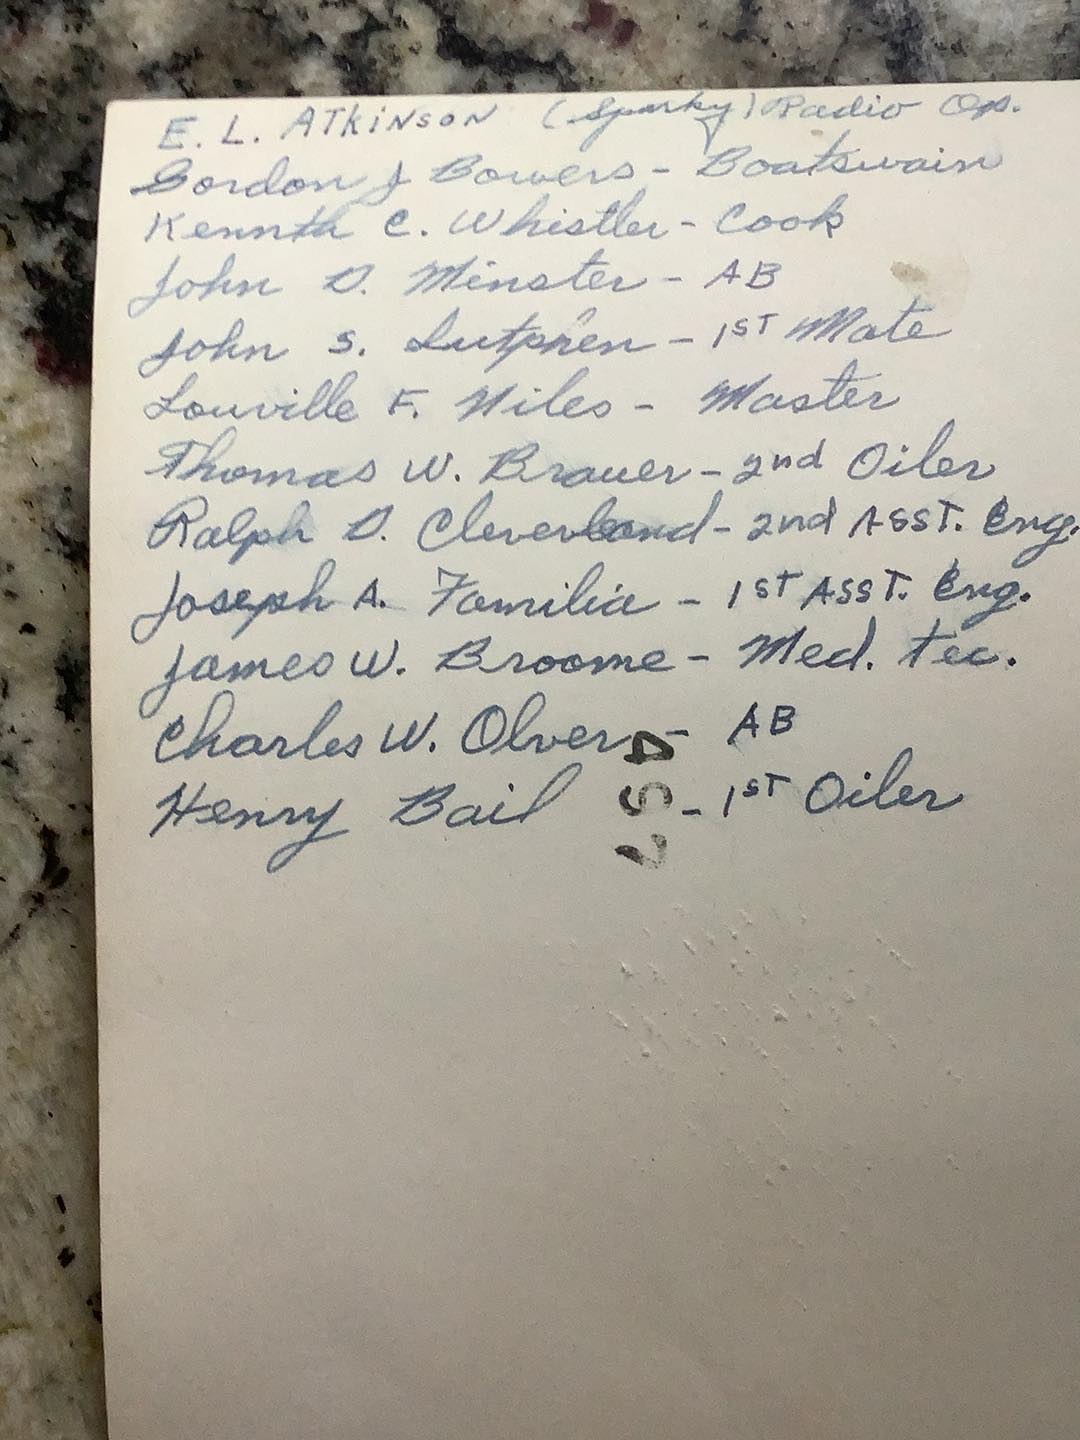 E. L. ATKINSON (Sparky) Radio Op.
Gordon J Bowers - Boatswain
Kennth C. Whistler - Cook
John D. Minster - AB
John S. Lutphen - 1ST Mate
Louville F. Niles - Master
Thomas W. Brauer - 2nd Oiler
Ralph D. Cleverland - 2nd ASST. Eng.
Joseph A. Familia - 1ST ASST. Eng.
James W. Broome - Med. Tec.
Charles W. Olvers - AB
Henry Bail - 1ST Oiler
457